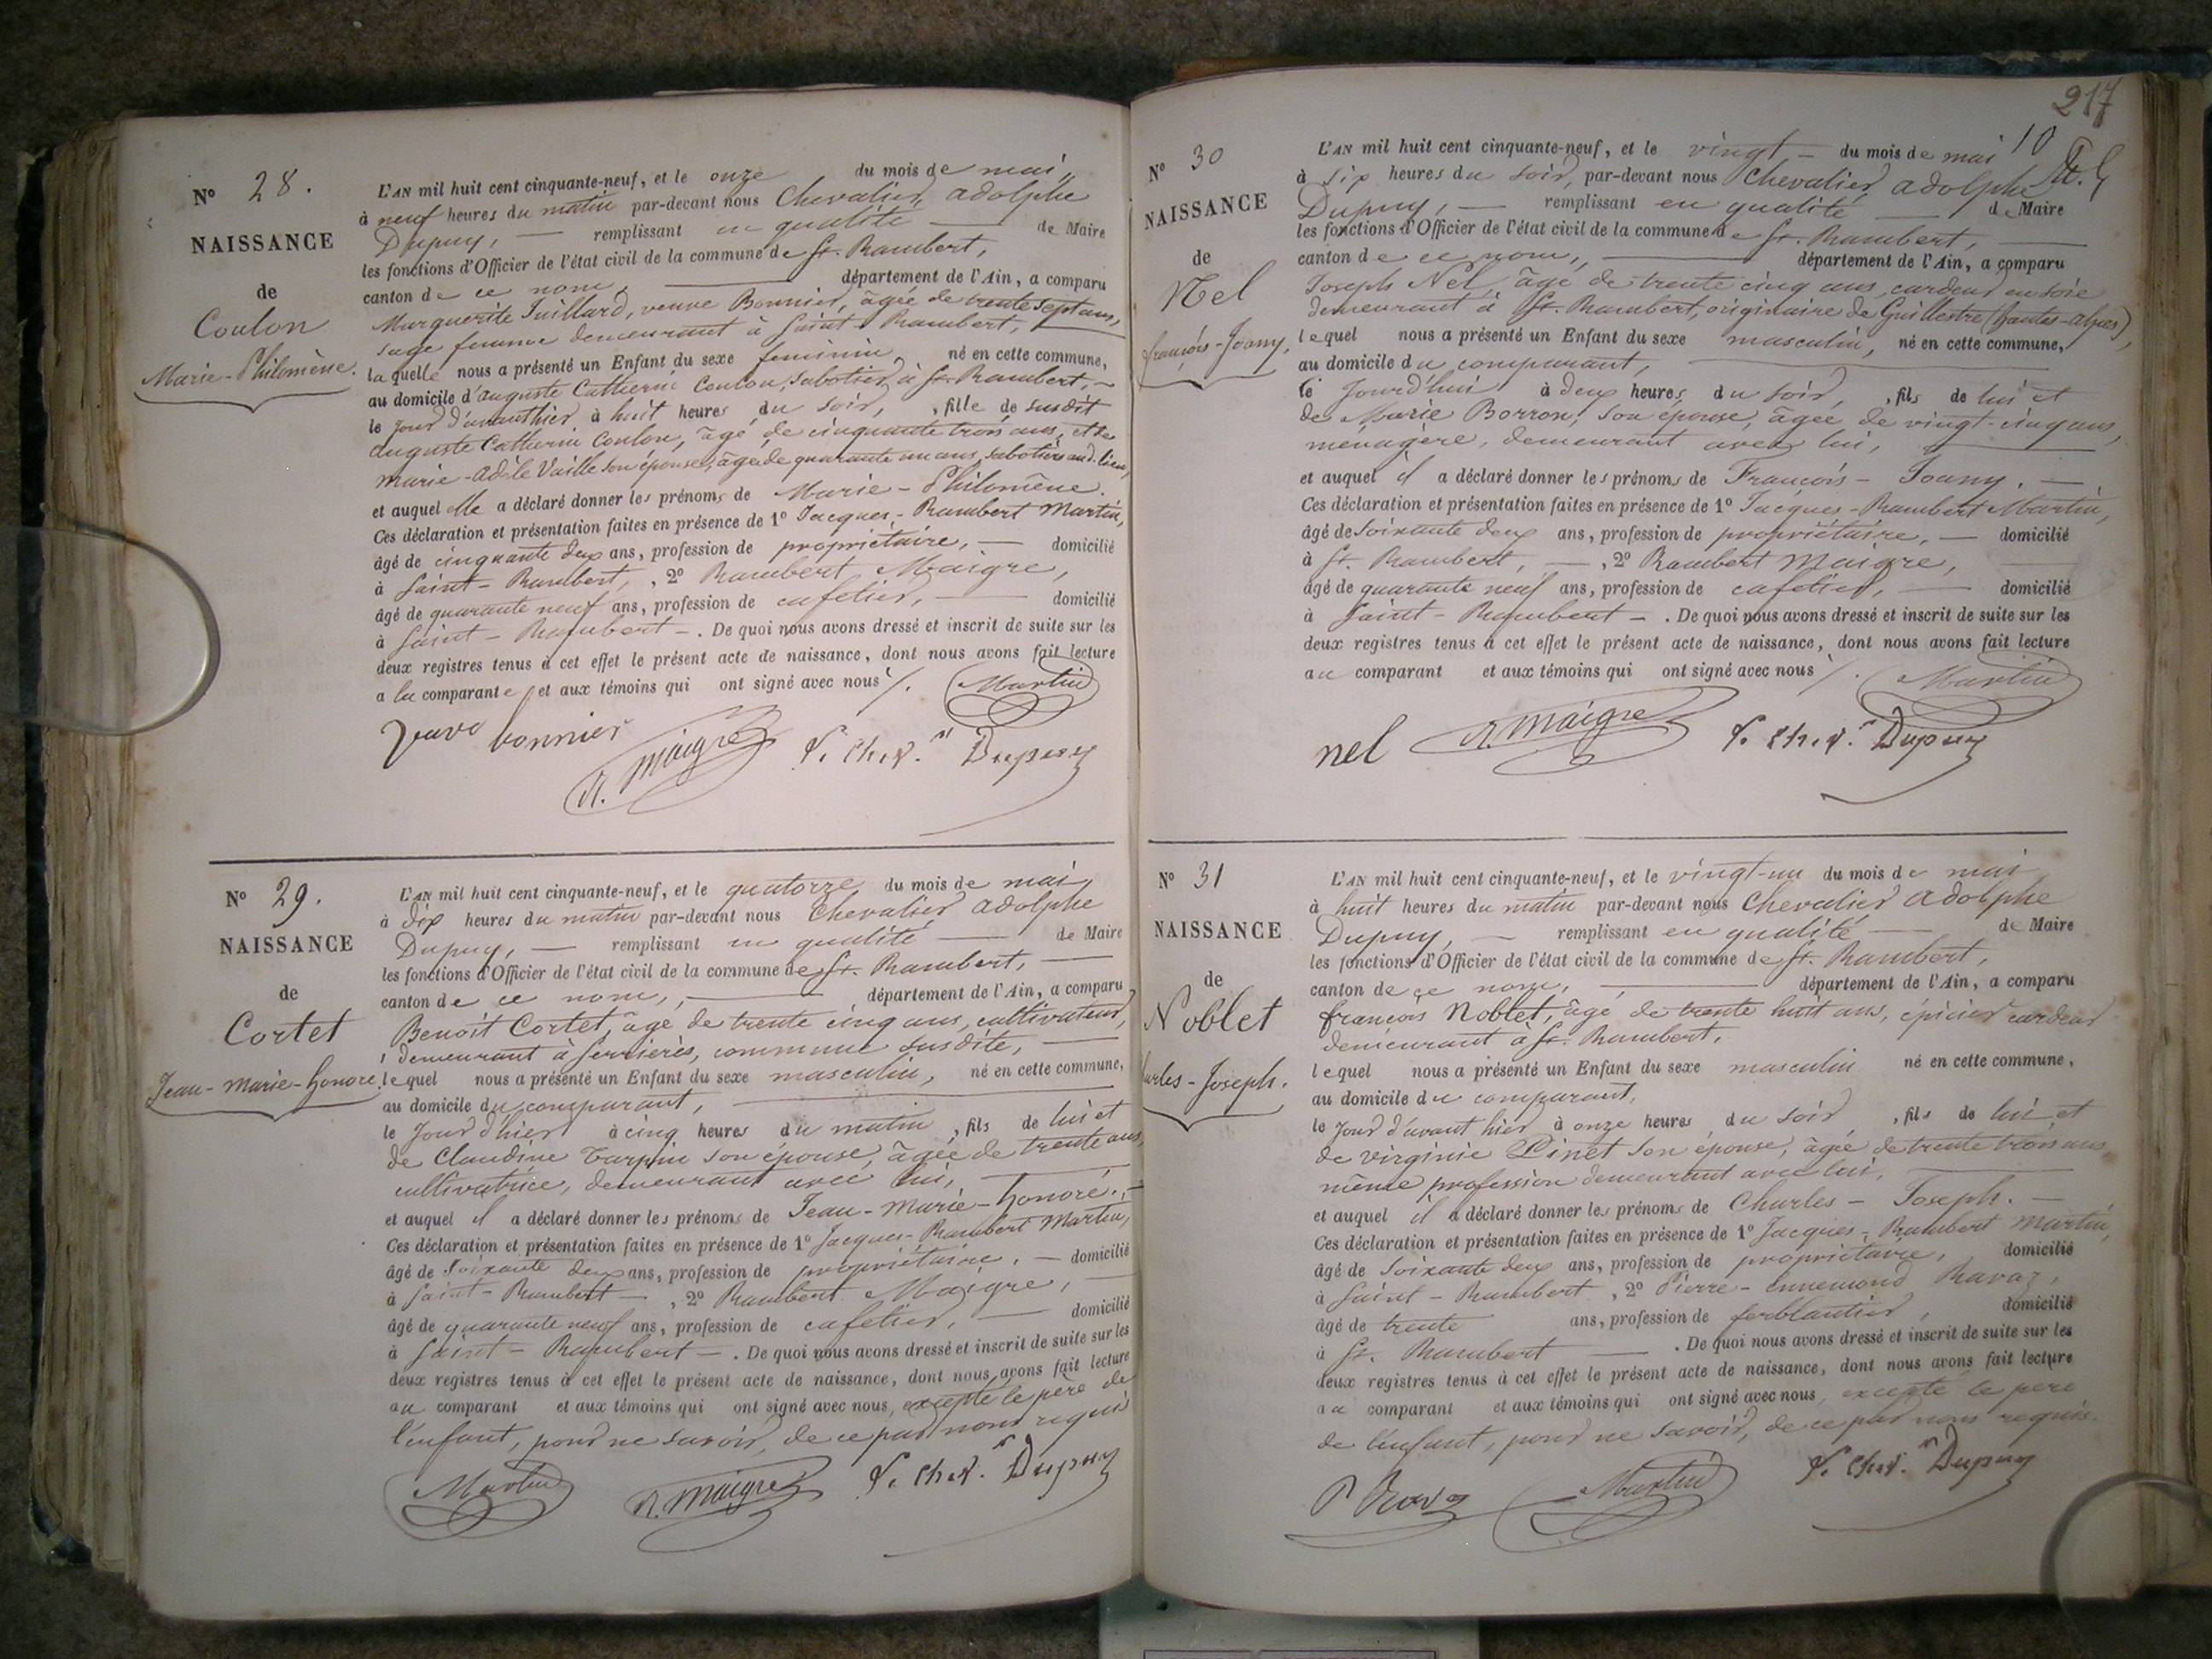 N° 28.
NAISSANCE
de
Coulon
Marie-Philomène.
L'AN mil huit cent cinquante-neuf, et le onze du mois de mai,
à neuf heures du matin par-devant nous Chevalier, adolphe
Dupuy, — remplissant en qualité — de Maire
les fonctions d'Officier de l'état civil de la commune de St. Rambert,
canton de ce nom, — département de l'Ain, a comparu
Marguerite Juillard, veuve Bonnier, âgée de trente sept ans,
sage femme demeurant à Saint-Rambert,
laquelle nous a présenté un Enfant du sexe feminin né en cette commune,
au domicile d'auguste Catherin Coulon, sabotier à St. Rambert, —
le jour d'avanthier à huit heures du soir, , fille de susdit
auguste Catherin Coulon, âgé de cinquante trois ans, et de
marie-adèle Vaille son épouse, âgée de quarante un ans, sabotiers aud. lieu,
et auquel elle a déclaré donner les prénoms de Marie-Philomène.
Ces déclaration et présentation faites en présence de 1° Jacques-Rambert Martin,
âgé de cinquante deux ans, profession de propriétaire, — domicilié
à Saint-Rambert, , 2° Rambert Maigre,
âgé de quarante neuf ans, profession de cafetier, — domicilié
à Saint-Rambert —. De quoi nous avons dressé et inscrit de suite sur les
deux registres tenus à cet effet le présent acte de naissance, dont nous avons fait lecture
a la comparante et aux témoins qui ont signé avec nous /. Martin
veuve bonnier
R. Maigre V. Chev.r Dupuy
N° 29.
NAISSANCE
de
Cortet
Jean-marie-honoré
L'AN mil huit cent cinquante-neuf, et le quatorze du mois de mai,
à dix heures du matin par-devant nous Chevalier adolphe
Dupuy, — remplissant en qualité — de Maire
les fonctions d'Officier de l'état civil de la commune de St. Rambert, —
canton de ce nom, — département de l'Ain, a comparu
Benoit Cortet, âgé de trente cinq ans, cultivateur,
demeurant à Serrières, commune susdite, —
lequel nous a présenté un Enfant du sexe masculin, né en cette commune,
au domicile du comparant, —
le jour d'hier à cinq heures du matin , fils de lui et
de Claudine Tarpin son épouse, âgée de trente ans,
cultivatrice, demeurant avec lui, —
et auquel il a déclaré donner les prénoms de Jean-marie-honoré. —
Ces déclaration et présentation faites en présence de 1° Jacques-Rambert Martin,
âgé de soixante deux ans, profession de propriétaire. — domicilié
à Saint-Rambert — , 2° Rambert Maigre, —
âgé de quarante neuf ans, profession de cafetier, — domicilié
à Saint-Rambert —. De quoi nous avons dressé et inscrit de suite sur les
deux registres tenus à cet effet le présent acte de naissance, dont nous avons fait lecture
au comparant et aux témoins qui ont signé avec nous, excepté le père de
l'enfant, pour ne savoir, de ce par nous requis
Martin R. Maigre V. Chev.r Dupuy
217
10
N° 30
NAISSANCE
de
Nel
françois-Joany,
L'AN mil huit cent cinquante-neuf, et le vingt — du mois de mai
à six heures du soir, par-devant nous Chevalier, adolphe
Dupuy, — remplissant en qualité — de Maire
les fonctions d'Officier de l'état civil de la commune de St. Rambert, —
canton de ce nom, — département de l'Ain, a comparu
Joseph Nel, âgé de trente cinq ans, cardeur en soie
demeurant à St. Rambert, originaire de Guillestre (hautes-alpes),
lequel nous a présenté un Enfant du sexe masculin, né en cette commune,
au domicile du comparant, —
le Jourd'hui à deux heures du soir, , fils de lui et
de Marie Borron, son épouse, âgée de vingt-cinq ans,
menagère, demeurant avec lui, —
et auquel il a déclaré donner les prénoms de François-Joany. —
Ces déclaration et présentation faites en présence de 1° Jacques-Rambert Martin,
âgé de Soixante deux ans, profession de propriétaire, — domicilié
à St. Rambert, — , 2° Rambert Maigre, —
âgé de quarante neuf ans, profession de cafetier, — domicilié
à Saint-Rambert —. De quoi nous avons dressé et inscrit de suite sur les
deux registres tenus à cet effet le présent acte de naissance, dont nous avons fait lecture
au comparant et aux témoins qui ont signé avec nous /. Martin
nel R. Maigre V. Chev.r Dupuy
N° 31
NAISSANCE
de
Noblet
Charles-Joseph.
L'AN mil huit cent cinquante-neuf, et le vingt-un du mois de mai
à huit heures du matin par-devant nous Chevalier adolphe
Dupuy, — remplissant en qualité — de Maire
les fonctions d'Officier de l'état civil de la commune de St. Rambert,
canton de ce nom, — département de l'Ain, a comparu
françois Noblet, âgé de trente huit ans, épicier cardeur
demeurant à St. Rambert,
lequel nous a présenté un Enfant du sexe masculin né en cette commune,
au domicile du comparant,
le jour d'avant hier à onze heures du soir , fils de lui et
de virginie Pinet son épouse, âgée de trente trois ans,
même profession demeurant avec lui, —
et auquel il a déclaré donner les prénoms de Charles-Joseph. —
Ces déclaration et présentation faites en présence de 1° Jacques-Rambert Martin,
âgé de Soixante deux ans, profession de propriétaire, domicilié
à Saint-Rambert , 2° Pierre-Ennemond Ravaz,
âgé de trente ans, profession de ferblantier, domicilié
à St. Rambert — . De quoi nous avons dressé et inscrit de suite sur les
deux registres tenus à cet effet le présent acte de naissance, dont nous avons fait lecture
au comparant et aux témoins qui ont signé avec nous, excepté le père
de l'enfant, pour ne savoir, de ce par nous requis.
P Ravaz Martin V. Chev.r Dupuy